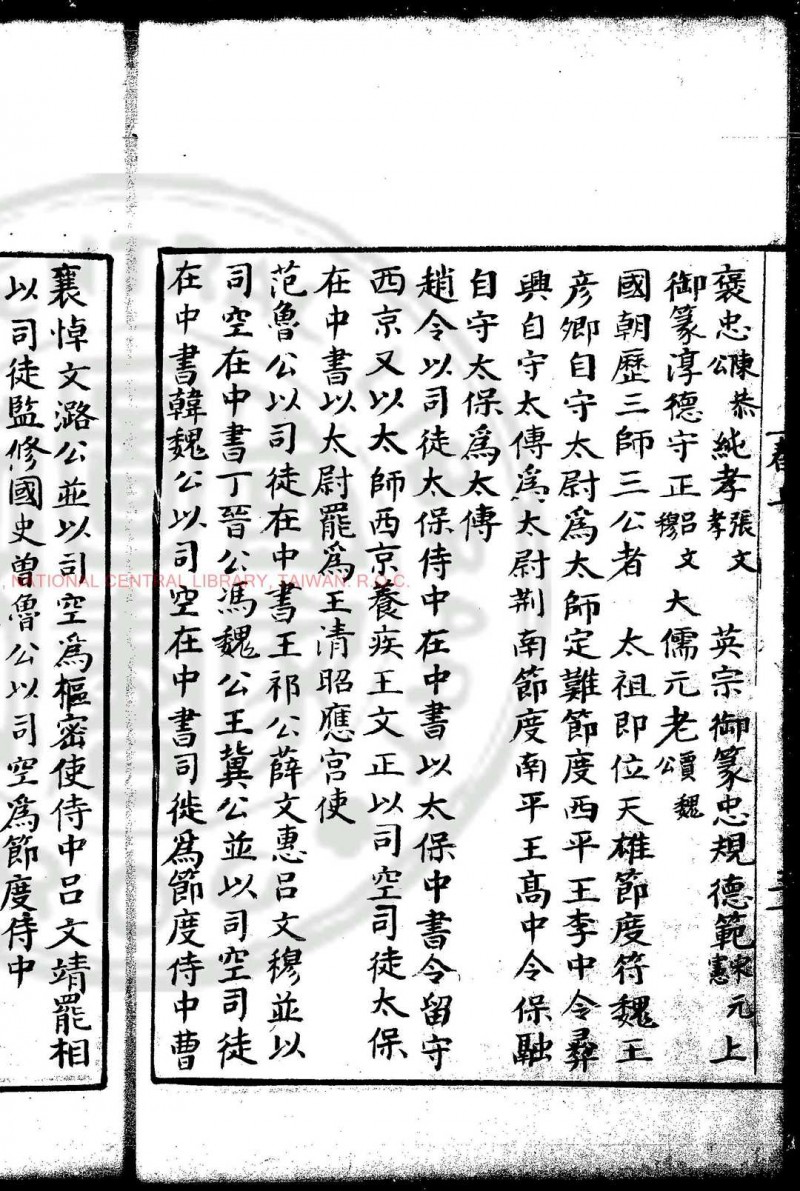 褒忠陳恭公 純孝張文孝 英宗御篆忠規德範宋元憲 上
御篆淳德守正呂文穆 大儒元老賈魏公
國朝歷三師三公者 太祖即位天雄節度符魏王
彦卿自守太尉爲太師定難節度西平王李中令彝
興自守太傳爲太尉荆南節度南平王髙中令保融
自守太保爲太傳
趙令以司徒太保侍中在中書以太保中書令留守
西京又以太師西京養疾王文正以司空司徒太保
在中書以太尉罷爲玉清昭應宫使
范魯公以司徒在中書王祁公薛文惠吕文穆並以
司空在中書丁晉公馮魏公王冀公並以司空司徒
在中書韓魏公以司空在中書司徙爲節度侍中曹
襄悼文潞公並以司空爲樞密使侍中吕文靖罷相
以司徒監修國史曽魯公以司空爲節度侍中
NATIONAL CENTRAL LIBRARY, TAIWAN, R.O.C.